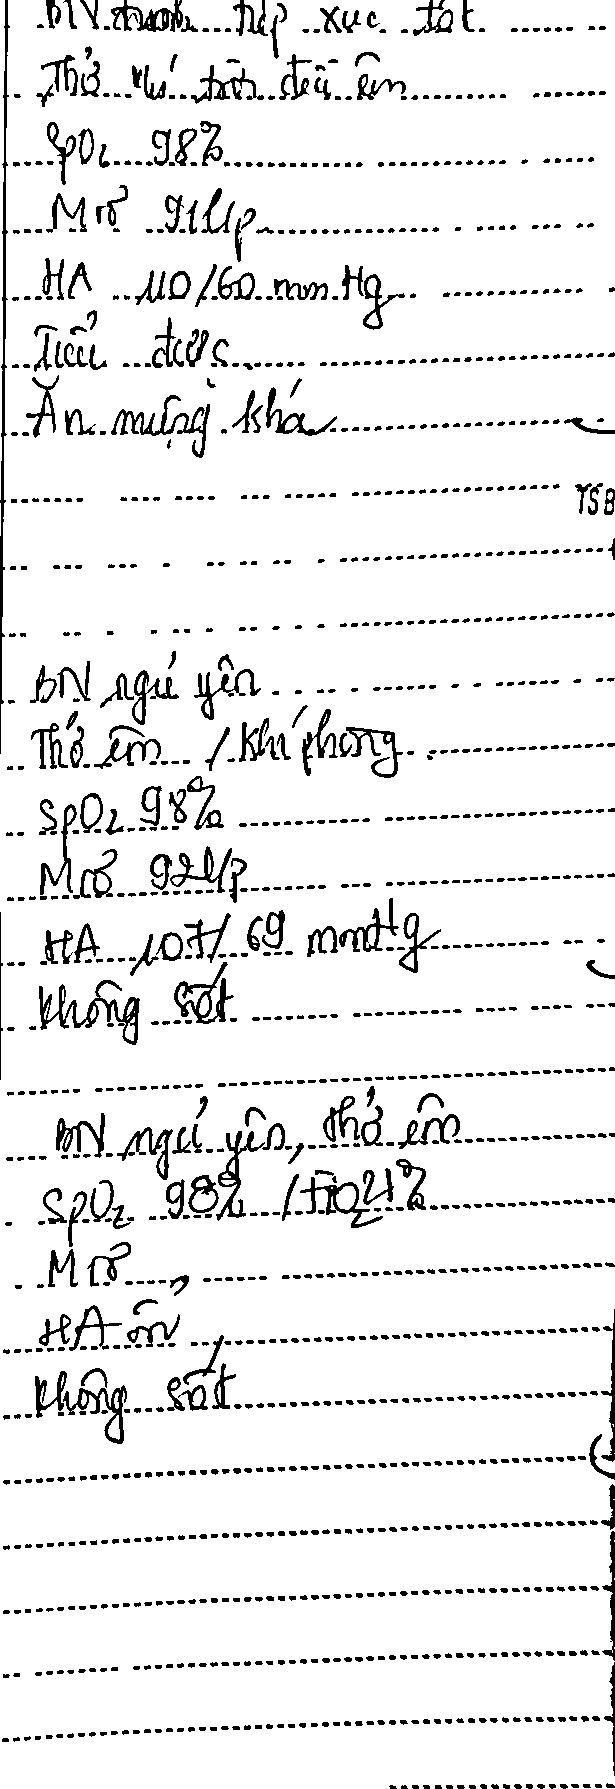 BN tỉnh tiếp xúc tốt
Thở khí trời đều êm
SpO2 98%
Mrõ 91l/p
HA 110/60 mmHg
Tiểu được
Ăn miệng khá
TSB
BN ngủ yên
Thở êm / khí phòng
SpO2 98%
Mrõ 92l/p
HA 107/69 mmHg
Không sốt
BN ngủ yên, thở êm
SpO2 98% / FiO2 21%
M rõ,
HA ổn
Không sốt